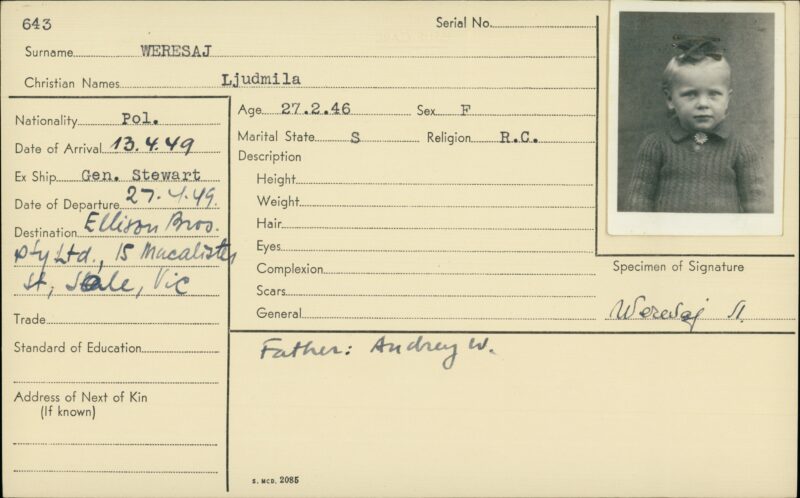 643
Serial No.
Surname WERESAJ
Christian Names Ljudmila
Nationality Pol.
Date of Arrival 13.4.49
Ex Ship Gen. Stewart
Date of Departure 27.4.49.
Destination Ellison Bros.
Pty Ltd., 15 Macalister
St, Sale, Vic
Trade
Standard of Education
Address of Next of Kin
(If known)
Age 27.2.46 Sex F
Marital State S Religion R.C.
Description
Height
Weight
Hair
Eyes
Complexion
Scars
General
Specimen of Signature
Weresaj A.
Father: Andrey W.
S. MCD. 2085